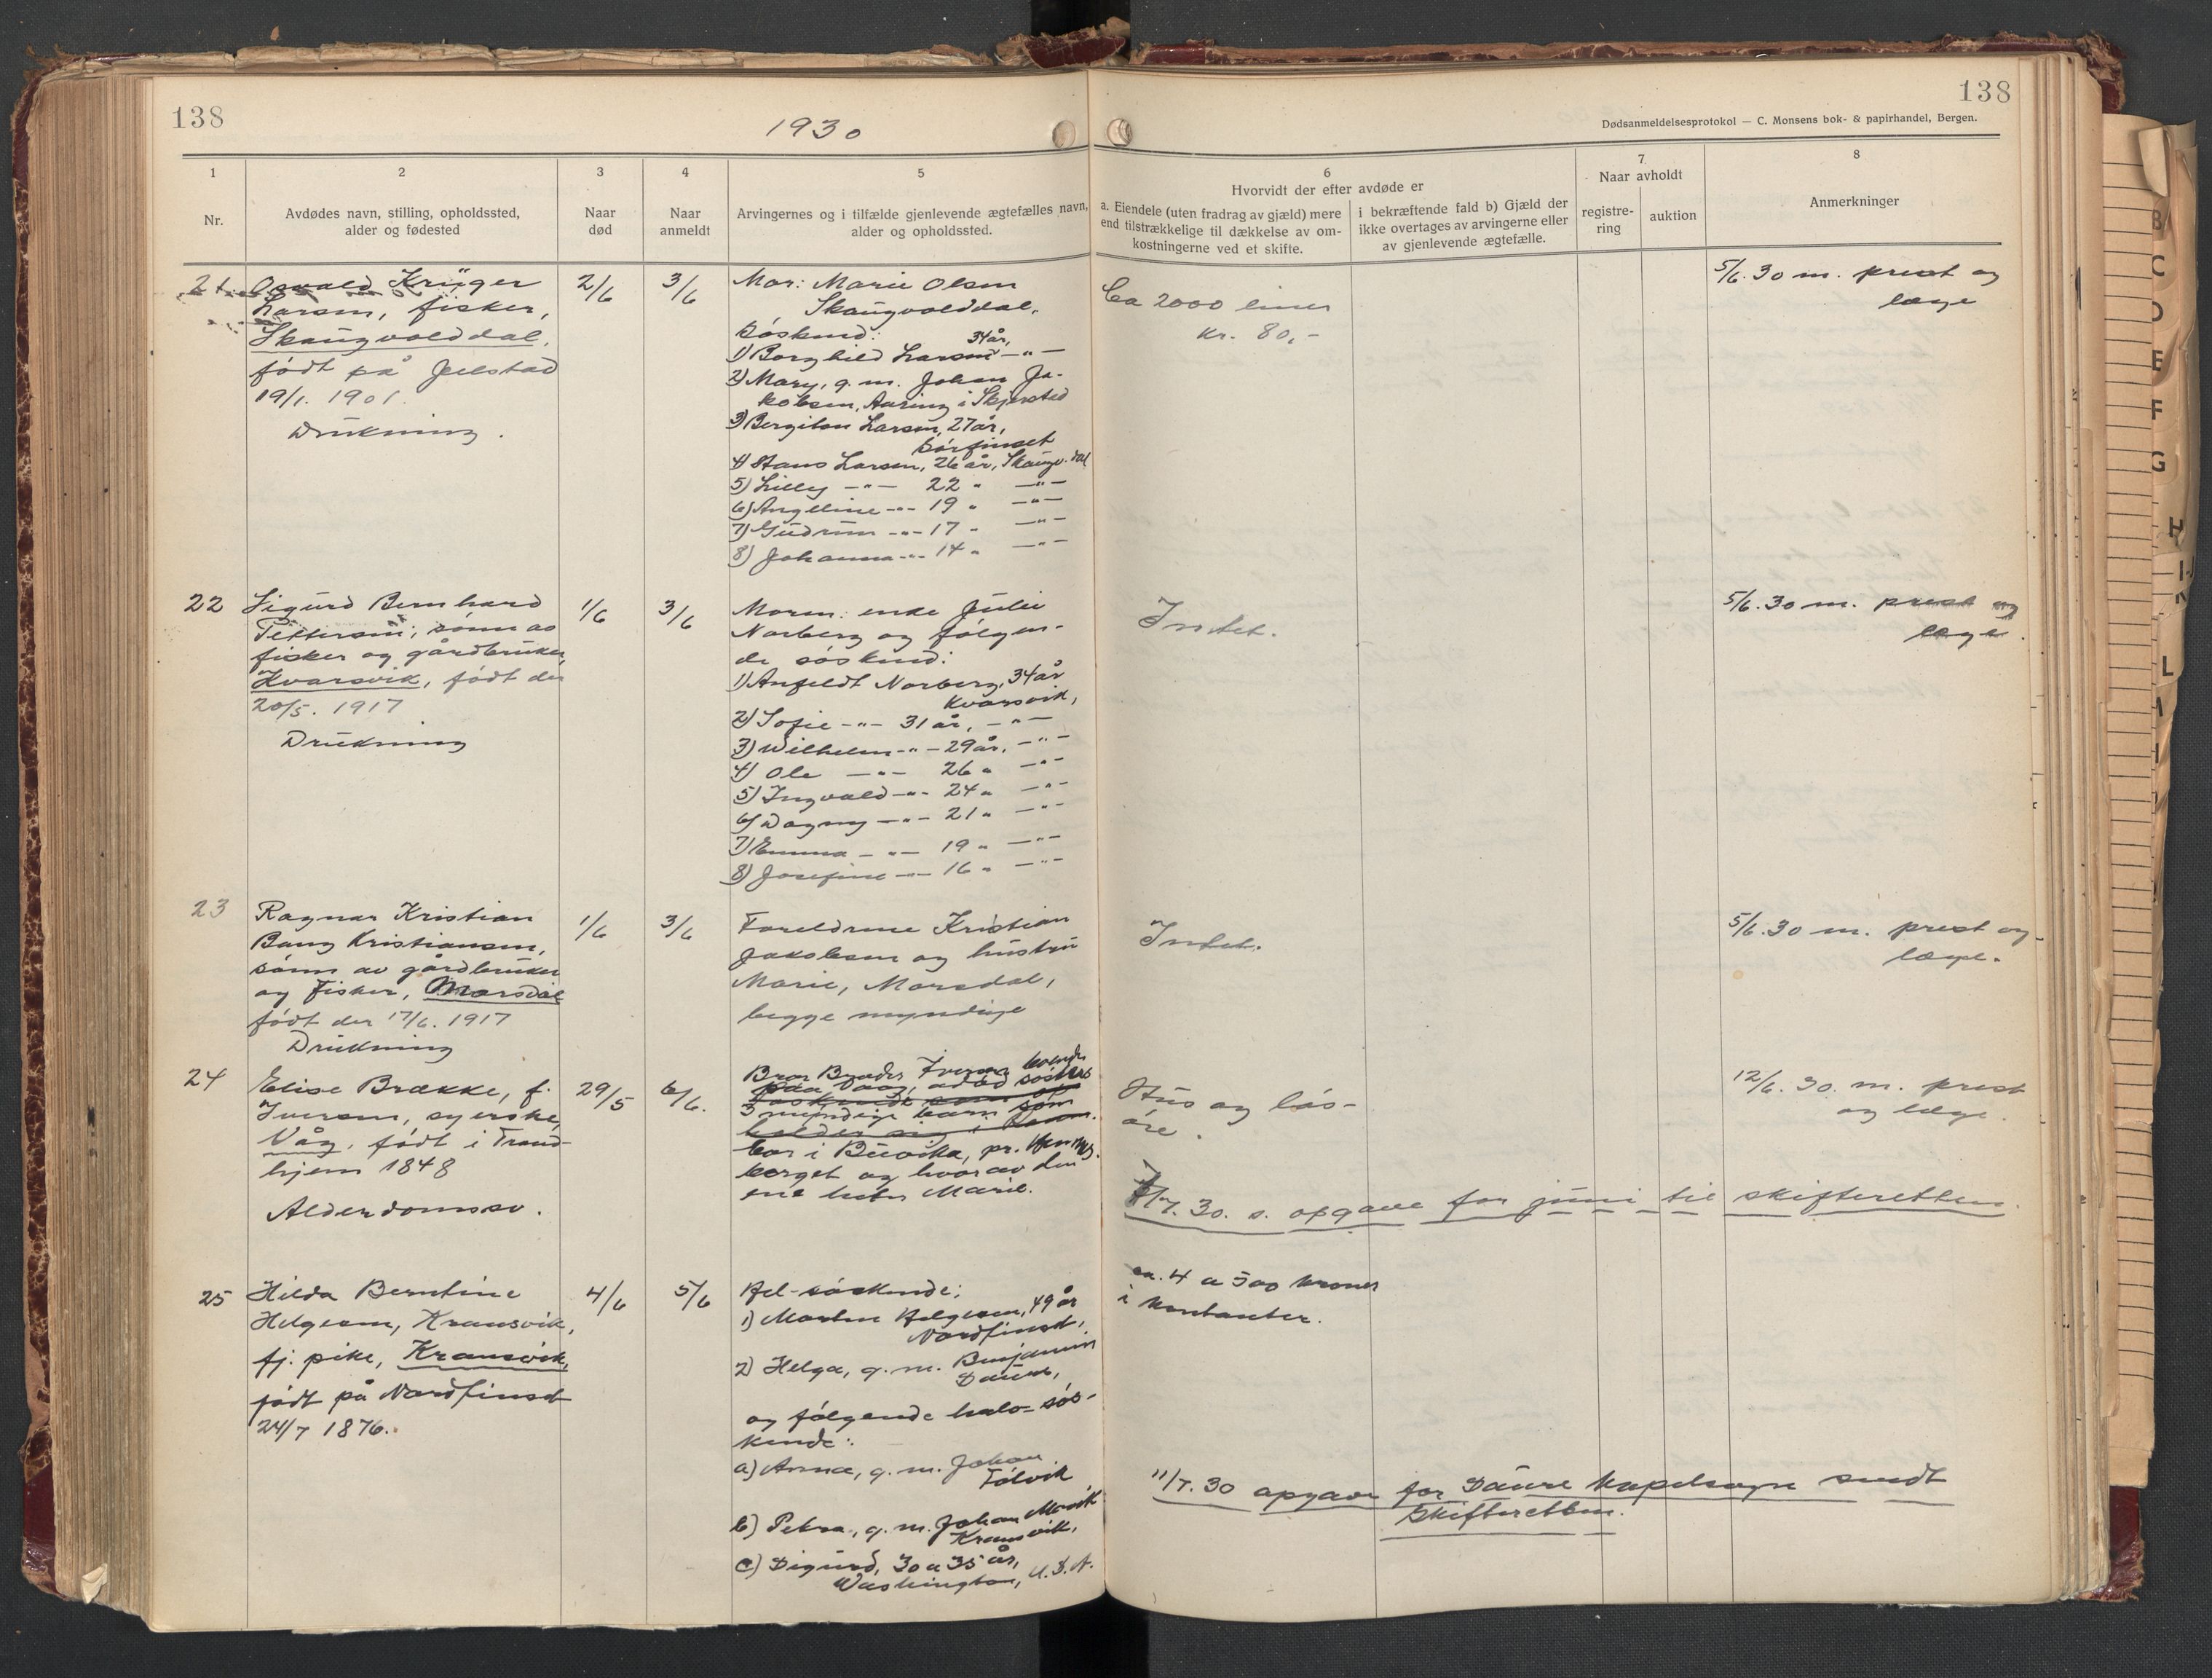 138
1930
138
Dødsanmeldelsesprotokol — C. Monsens bok- & papirhandel, Bergen.
1
2
3
4
5
6
7
8
Nr.
Avdødes navn, stilling, opholdssted,
alder og fødested
Naar
død
Naar
anmeldt
Arvingernes og i tilfælde gjenlevende ægtefælles navn,
alder og opholdssted.
Hvorvidt der efter avdøde er
a. Eiendele (uten fradrag av gjæld) mere
end tilstrækkelige til dækkelse av om-
kostningerne ved et skifte.
i bekræftende fald b) Gjæld der
ikke overtages av arvingerne eller
av gjenlevende ægtefælle.
Naar avholdt
registre-
ring
auktion
Anmerkninger
21.
Osvald Krüger
Larsen, fisker,
Skaugvolddal,
født på Jelstad
19/1. 1901.
Drukning.
2/6
3/6
Mor: Marie Olsen
Skaugvolddal,
Søskend:
34 år,
1) Borghild Larsen —"—
2) Mary, g. m. Johan Ja-
kobsen, Aaring i Skjerstad
3) Bergiton Larsen, 27 år,
Sørfinset
4) Hans Larsen, 26 år, Skaugv.dal
5) Lilly —"— 22 " —"—
6) Angeline —"— 19 " —"—
7) Gudrun —"— 17 " —"—
8) Johanna —"— 14 " —"—
Ca 2000 liner
kr. 80,-
5/6. 30 m. prest og
læge
22
Sigurd Bernhard
Pettersen, sønn av
fisker og gårdbruker,
Kvarsvik, født den
20/5. 1917
Drukning
1/6
3/6
Moren: enke Julie
Norberg og følgen-
de søskend:
1) Anfeldt Norberg, 34 år
Kvarsvik,
2) Sofie —"— 31 år, —"—
3) Wilhelm —"— 29 år, —"—
4) Ole —"— 26 " —"—
5) Ingvald —"— 24 " —"—
6) Dagny —"— 21 " —"—
7) Emma —"— 19 " —"—
8) Josefine —"— 16 " —"—
Intet.
5/6. 30 m. prest og
læge.
23
Ragnar Kristian
Bang Kristiansen,
sønn av gårdbruker
og fisker, Marsdal
født den 17/6. 1917
Drukning
1/6
3/6
Foreldrene Kristian
Jakobsen og hustru
Marie, Marsdal,
begge myndige
Intet.
5/6. 30 m. prest og
læge.
24
Elise Brække, f.
Iversen, syerske,
Våg, født i Trond-
hjem 1848
Alderdomssv.
29/5
6/6.
Bror Iversen
3 myndige barn som
bor i Buvika, pr. Hemnes-
berget og hvorav den
ene heter Marie.
Hus og løs-
øre.
12/6. 30. m. prest
og læge.
7/7. 30. s. opgave for juni til skifteretten.
25
Hilda Berntine
Helgesen, Kransvik,
fj. pike, Kransvik,
født på Nordfinset
24/7 1876.
4/6
5/6
Hel-søskende:
1) Morten Helgesen, 49 år
Nordfinset,
2) Helga, g. m. Benjamin
Saure,
og følgende halv-søs-
kende:
a) Anna, g. m. Johan
Tølvik
b) Petra, g. m. Johan Morsvik
Kransvik,
c) Sigurd, 30 a 35 år,
Washington, U.S.A.
ca. 4 a 500 kroner
i kontanter.
11/7. 30 opgave for Saure kapelsogn sendt
skifteretten.
B
C
D
E
F
G
H
L